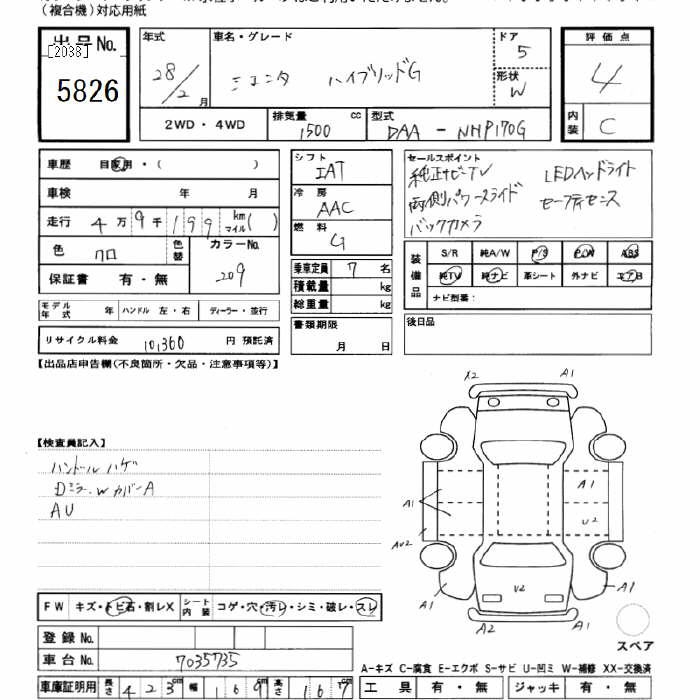 (複合機)対応用紙
出品No.
[2038]
5826
年式
28/2月
車名・グレード
シエンタ ハイブリッドG
ドア
5
形状
W
2WD・4WD
排気量
1500
cc
型式
DAA-NHP170G
評価点
4
内装
C
車歴
自家用・( )
車検
年 月
走行
4万9千199
km
マイル
( )
色
クロ
色替
カラーNo.
209
保証書 有・無
モデル年式
年
ハンドル 左・右
ディーラー・並行
リサイクル料金
10,360
円 預託済
シフト
IAT
冷房
AAC
燃料
G
乗車定員
7
名
積載量
kg
総重量
kg
書類期限
月 日
セールスポイント
純正ナビTV LEDヘッドライト
両側パワースライド セーフティセンス
バックカメラ
装備品
S/R
純A/W
P/S
P/W
ABS
純TV
純ナビ
革シート
外ナビ
エアB
ナビ型番:
後日品
【出品店申告欄(不良箇所・欠品・注意事項等)】
【検査員記入】
ハンドルハゲ
Dミラー.WカバーA
AU
X2
A1
A1
A1
U2
AU2
A1
U2
A1
A2
A1
スペア
FW
キズ・トビ石・割レX
シート内装
コゲ・穴・汚レ・シミ・破レ・スレ
登録No.
車台No.
7035735
車庫証明用
長さ
423
cm
幅
169
cm
高さ
167
cm
A-キズ C-腐食 E-エクボ S-サビ U-凹ミ W-補修 XX-交換済
工具 有・無
ジャッキ 有・無